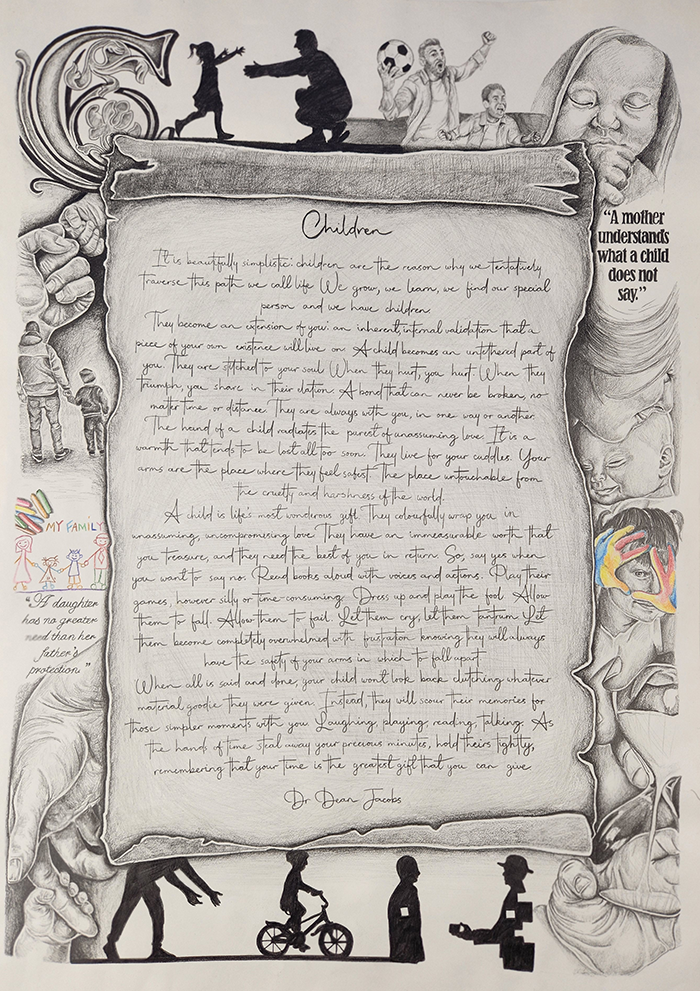 Children
It is beautifully simplistic: children are the reason why we tentatively
traverse this path we call life We grow, we learn, we find our special
person and we have children.
They become an extension of you: an inherent, internal validation that a
piece of your own existence will live on. A child becomes an untethered part of
you. They are stitched to your soul When they hurt, you hurt When they
triumph, you share in their elation. A bond that can never be broken, no
matter time or distance. They are always with you, in one way or another.
The hand of a child radiates the purest of unassuming love. It is a
warmth that tends to be lost all too soon. They live for your cuddles. Your
arms are the place where they feel safest. The place untouchable from
the cruelty and harshness of the world.
A child is life's most wonderous gift. They colourfully wrap you in
unassuming, uncompromising love. They have an immeasurable worth that
you treasure, and they need the best of you in return. So, say yes when
you want to say no. Read books aloud with voices and actions. Play their
games, however silly or time-consuming. Dress up and play the fool Allow
them to fall. Allow them to fail. Let them cry, let them tantrum Let
them become completely overwhelmed with frustration knowing they will always
have the safety of your arms in which to fall apart
When all is said and done, your child won't look back clutching whatever
material goodie they were given. Instead, they will scour their memories for
those simpler moments with you Laughing, playing, reading, talking. As
the hands of time steal away your precious minutes, hold theirs tightly,
remembering that your time is the greatest gift that you can give
Dr Dean Jacobs
“A mother
understands
what a child
does not
say.”
MY FAMILY
"A daughter
has no greater
need than her
father's
protection."